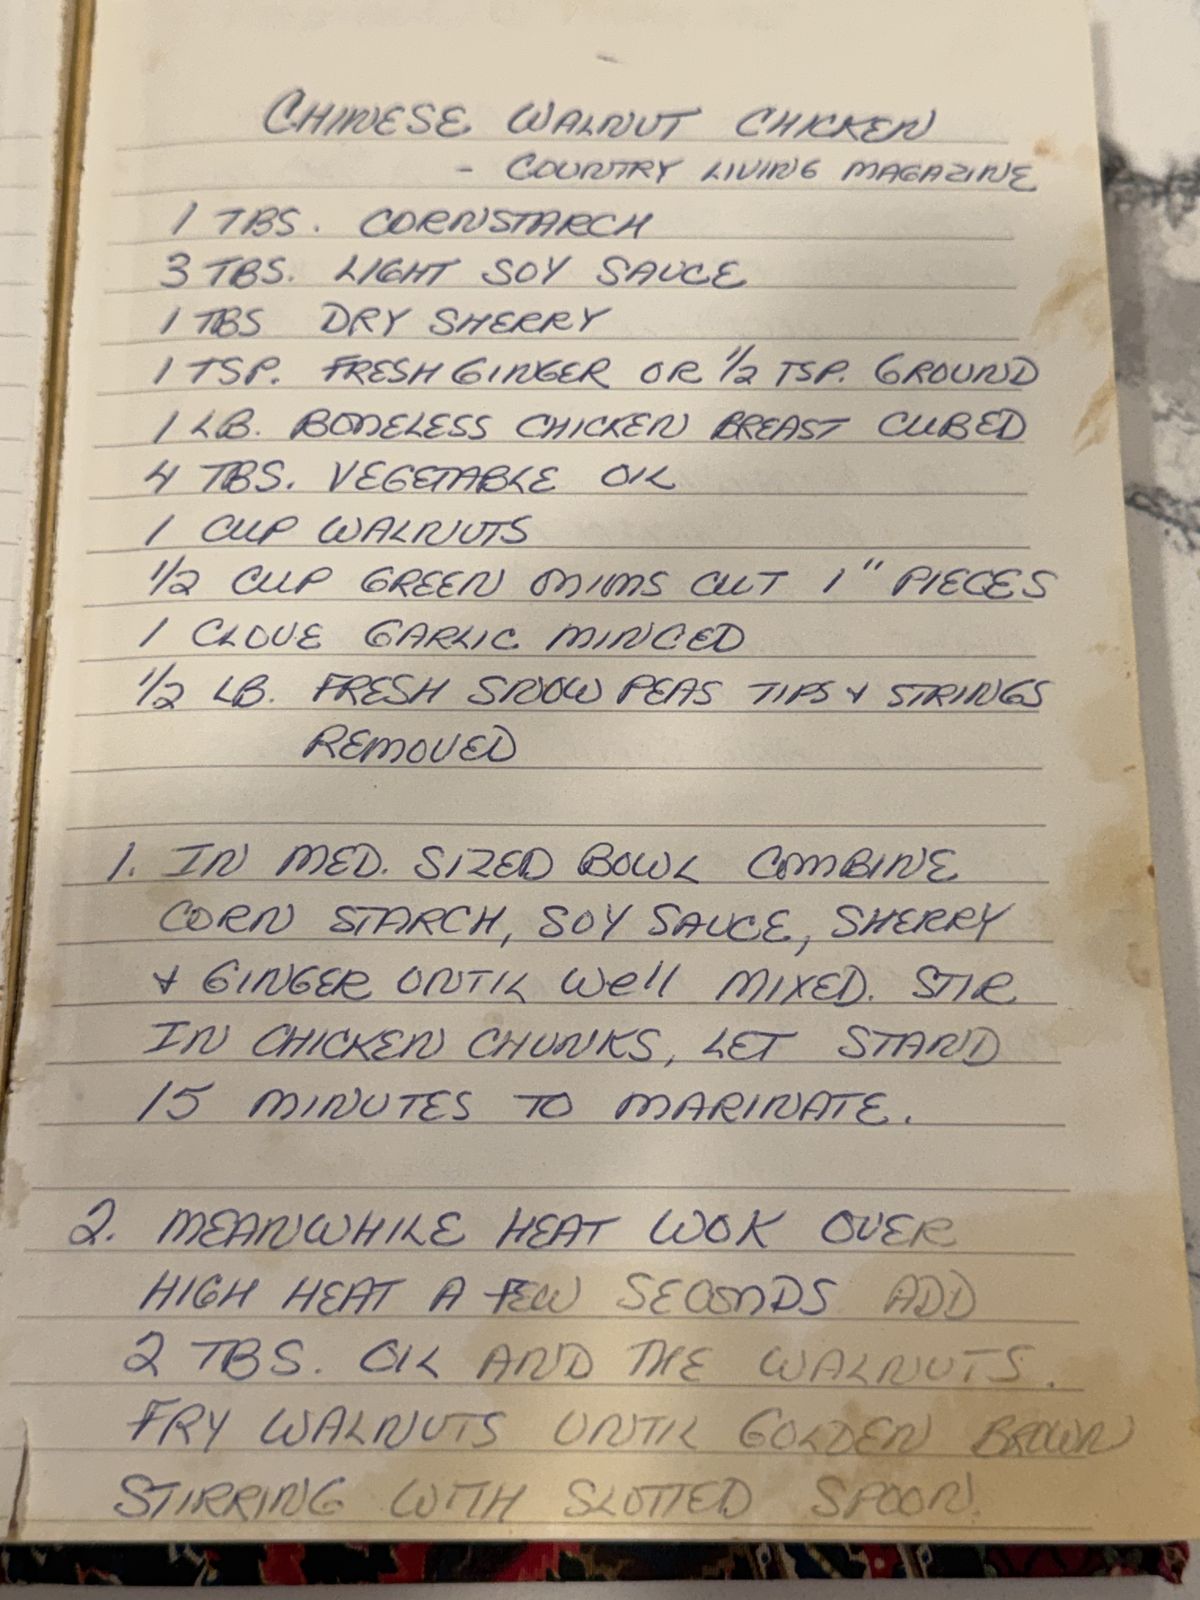 CHINESE WALNUT CHICKEN
- COUNTRY LIVING MAGAZINE
1 TBS. CORNSTARCH
3 TBS. LIGHT SOY SAUCE
1 TBS DRY SHERRY
1 TSP. FRESH GINGER OR 1/2 TSP. GROUND
1 LB. BONELESS CHICKEN BREAST CUBED
4 TBS. VEGETABLE OIL
1 CUP WALNUTS
1/2 CUP GREEN ONIONS CUT 1" PIECES
1 CLOVE GARLIC MINCED
1/2 LB. FRESH SNOW PEAS TIPS & STRINGS
REMOVED
1. IN MED. SIZED BOWL COMBINE
CORN STARCH, SOY SAUCE, SHERRY
& GINGER UNTIL Well MIXED. STIR
IN CHICKEN CHUNKS, LET STAND
15 MINUTES TO MARINATE.
2. MEANWHILE HEAT WOK OVER
HIGH HEAT A FEW SECONDS ADD
2 TBS. OIL AND THE WALNUTS.
FRY WALNUTS UNTIL GOLDEN BROWN
STIRRING WITH SLOTTED SPOON.